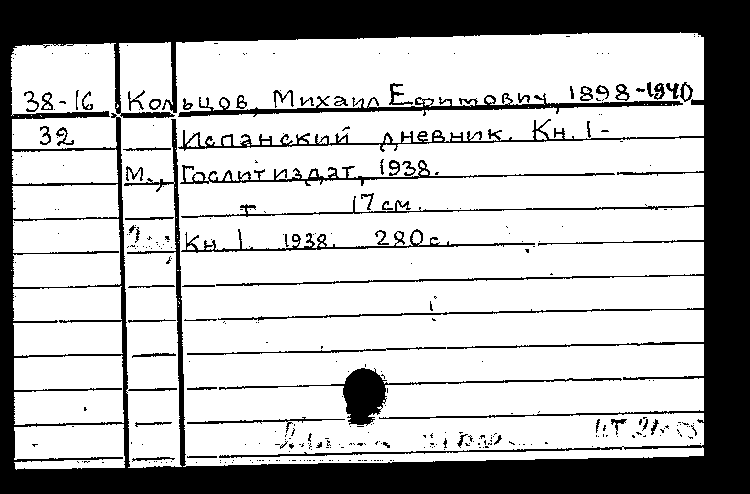 38-16 Кольцов, Михаил Ефимович, 1898-1940
32 Испанский дневник. Кн. 1-
М., Гослитиздат, 1938.
т. 17 см.
Кн. 1. 1938. 280 с.